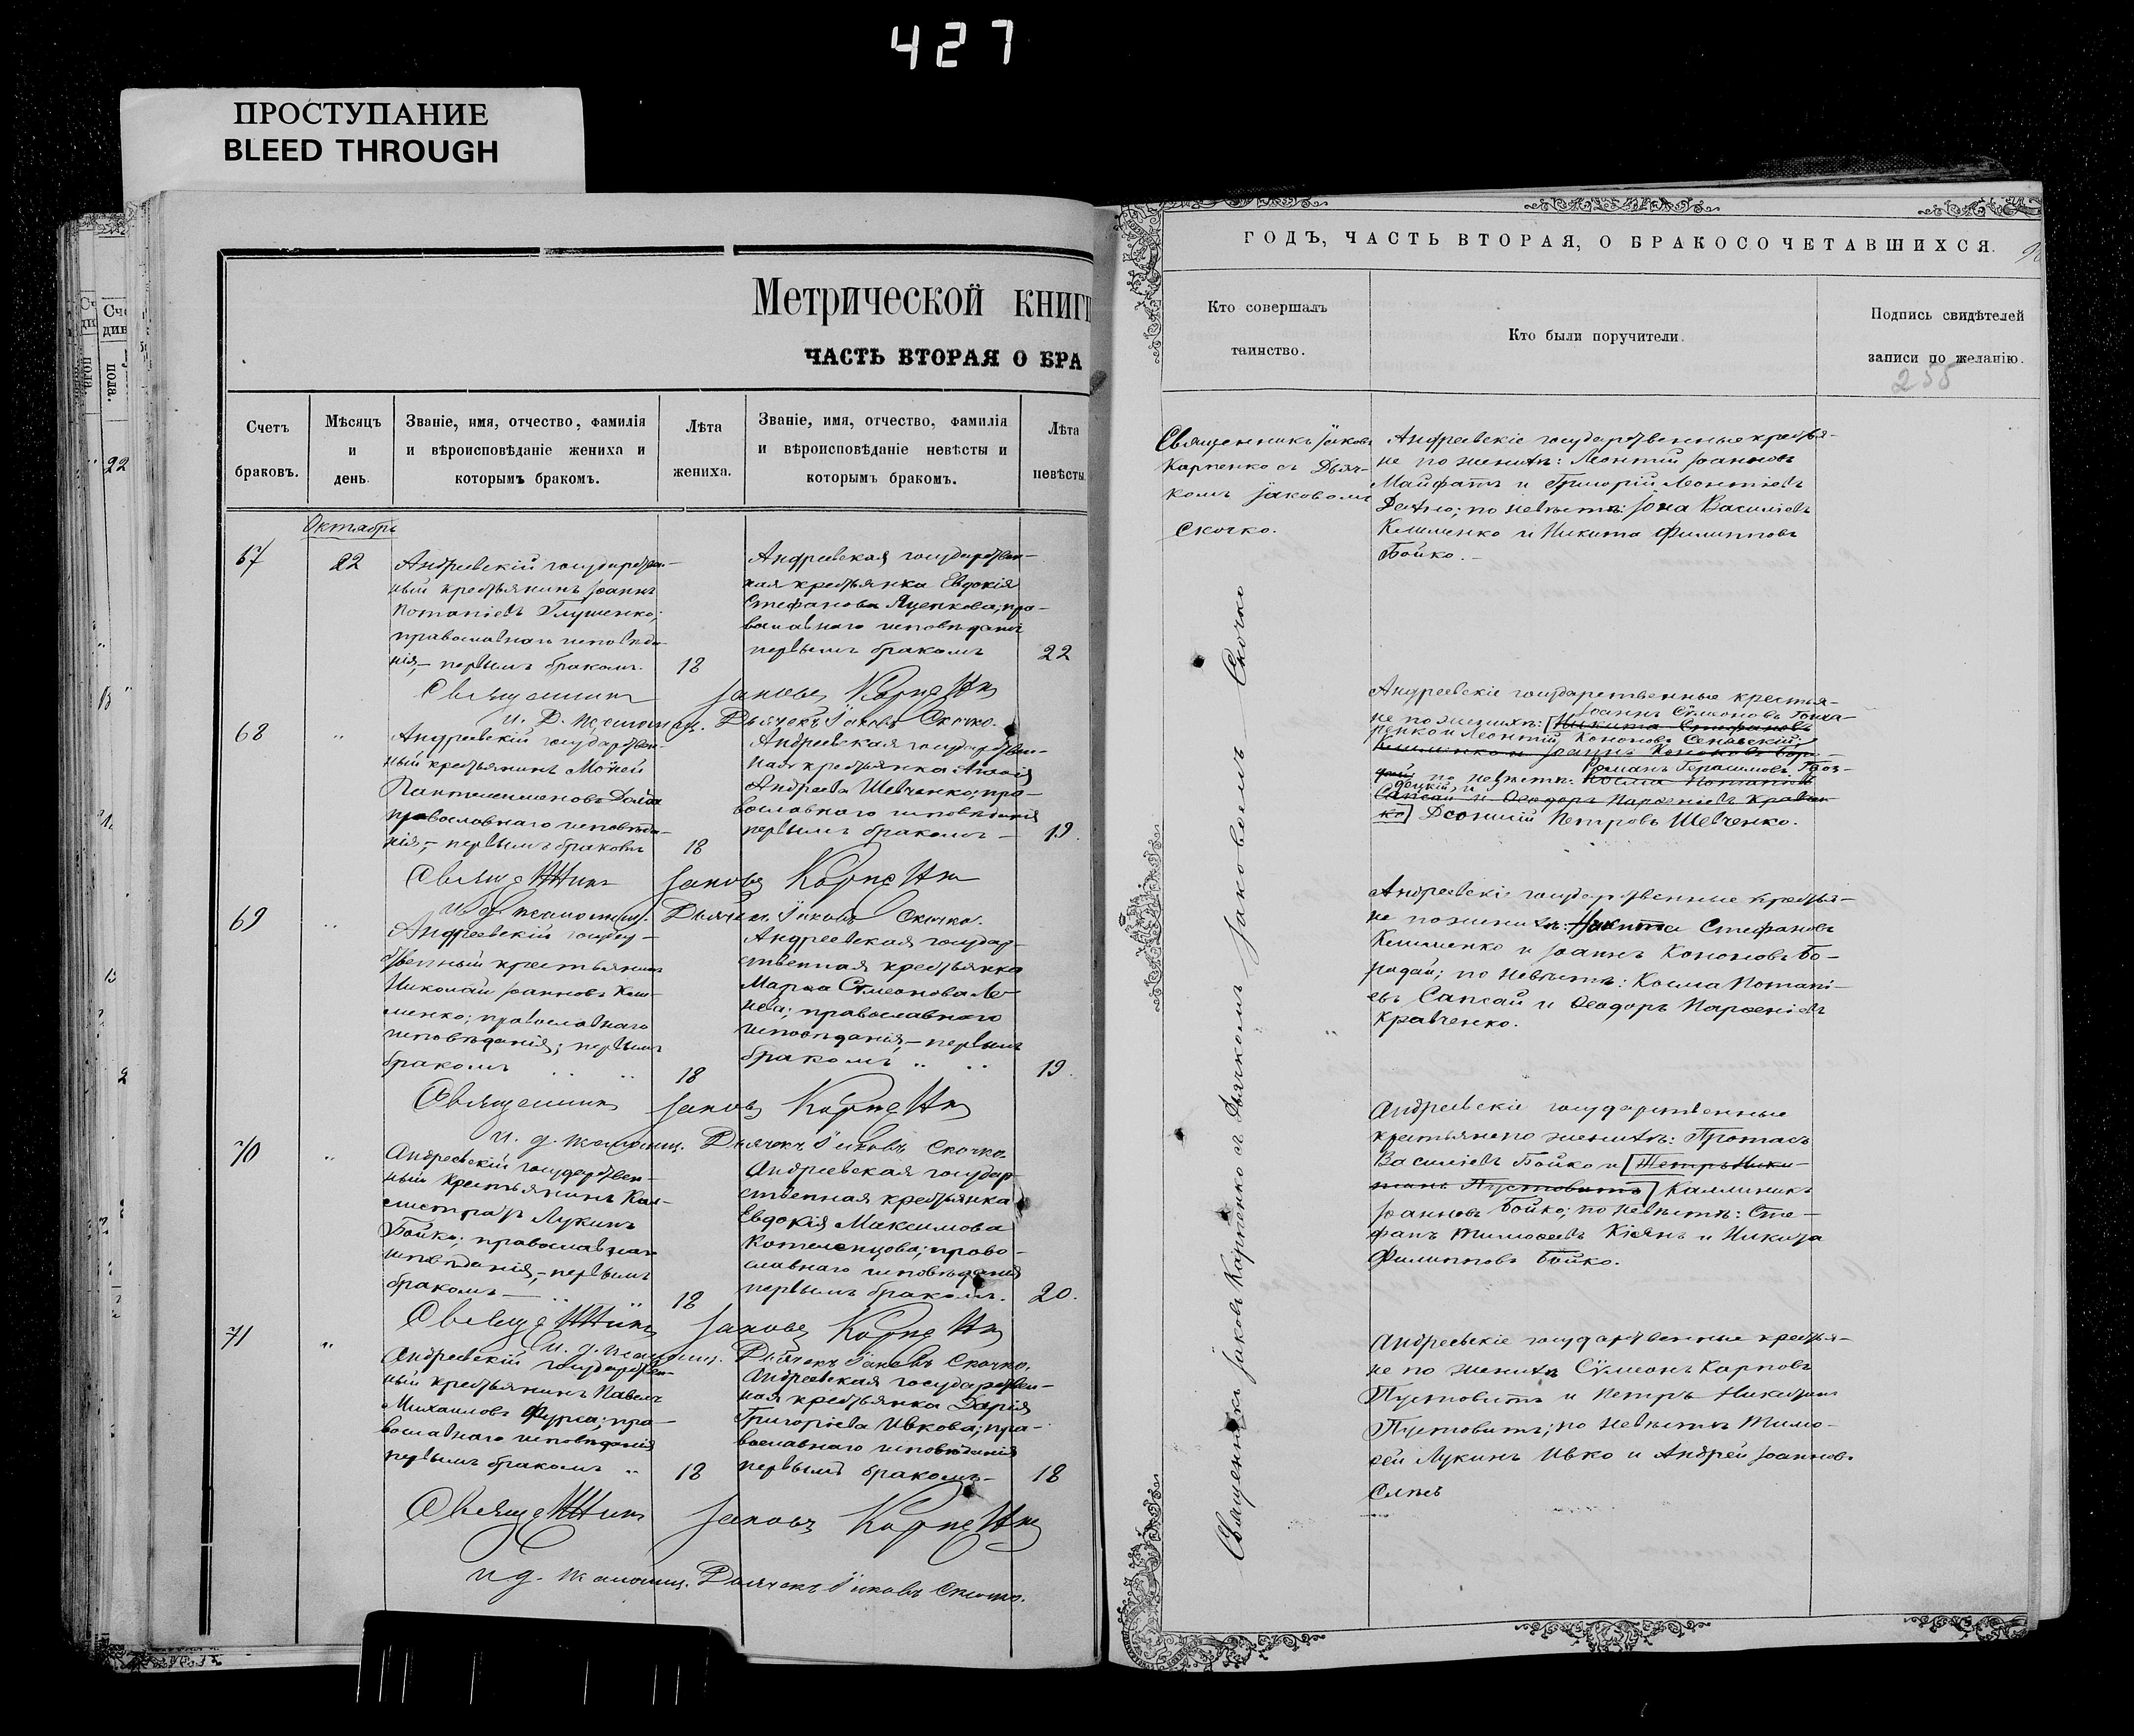 427
ПРОСТУПАНИЕ
BLEED THROUGH
Метрической книги
ЧАСТЬ ВТОРАЯ О БРА
Счетъ браковъ.
Мѣсяцъ и день.
Званіе, имя, отчество, фамилія
и вѣроисповѣданіе жениха и
которымъ бракомъ.
Лѣта жениха.
Званіе, имя, отчество, фамилія
и вѣроисповѣданіе невѣсты и
которымъ бракомъ.
Лѣта невѣсты
Октябрь
67
22
Андреевскій государствен-
ный крестьянинъ Іоаннъ
Потапіевъ Глушенко;
православнаго исповѣда-
нія,- первымъ бракомъ.
18
Андреевская государствен-
ная крестьянка Евдокія
Стефанова Яценкова; пра-
вославнаго исповѣданія
первымъ бракомъ
22
Священникъ Іаковъ Карпенко
и. д. псаломщ. Дьячекъ Іаковъ Скочко.
68
"
Андреевскій государствен-
ный крестьянинъ Моѵсей
Пантелеимоновъ
православнаго исповѣда-
нія,- первымъ бракомъ
18
Андреевская государствен-
ная крестьянка
Андреева Шевченко; пра-
вославнаго исповѣданія
первымъ бракомъ -
19.
Священникъ Іаковъ Карпенко
и. д. псаломщ. Дьячекъ Іаковъ Скочко.
69
"
Андреевскій государ-
ственный крестьянинъ
Николай Іоанновъ Кли-
менко; православнаго
исповѣданія; первымъ
бракомъ
18
Андреевская государ-
ственная крестьянка
Марѳа Сѵмеонова Ле-
нева; православнаго
исповѣданія,- первымъ
бракомъ
19.
Священникъ Іаковъ Карпенко
и. д. псаломщ. Дьячекъ Іаковъ Скочко.
70
"
Андреевскій государствен-
ный крестьянинъ Кал-
листратъ Лукинъ
Бойко; православнаго
исповѣданія,- первымъ
бракомъ
18
Андреевская государ-
ственная крестьянка
Евдокія Максимова
Котеленцова; право-
славнаго исповѣданія
первымъ бракомъ.
20.
Священникъ Іаковъ Карпенко
и. д. псаломщ. Дьячекъ Іаковъ Скочко.
71
"
Андреевскій государствен-
ный крестьянинъ Павелъ
Михаиловъ Фурса; пра-
вославнаго исповѣданія
первымъ бракомъ
18
Андреевская государствен-
ная крестьянка Дарія
Григоріева Ивкова; пра-
вославнаго исповѣданія
первымъ бракомъ-
18
Священникъ Іаковъ Карпенко
и д. псаломщ. Дьячекъ Іаковъ Скочко.
ГОДЪ, ЧАСТЬ ВТОРАЯ, О БРАКОСОЧЕТАВШИХСЯ.
Кто совершалъ
таинство.
Кто были поручители.
Подпись свидѣтелей
записи по желанію.
255
Священникъ Іаковъ
Карпенко съ Дьяч-
комъ Іаковомъ
Скочко.
Священникъ Іаковъ Карпенко съ Дьячкомъ Іаковомъ Скочко
Андреевскіе государственные крестья-
не по женихѣ: Леонтій Іоанновъ
Майфатъ и Григорій Леонтіевъ
по невѣстѣ: Іона Василіевъ
Клименко и Никита Филипповъ
Бойко.-
Андреевскіе государственные крестья-
Іоаннъ Сѵмеоновъ Гонча-
не по женихѣ: [Никита Стефановъ
ренко и Леонтій Кононовъ Сенявскій;
Клименко и Іоаннъ Кононовъ Бор-
Романъ Герасимовъ
по невѣстѣ: Косма Потапіевъ
Сапсай и Ѳеодоръ Парѳеніевъ Кравчен-
ко] Діонисій Петровъ Шевченко.
Андреевскіе государственные крестья-
не по женихѣ: Никита Стефановъ
Клименко и Іоаннъ Кононовъ Бо-
родай; по невѣстѣ: Косма Потапі-
евъ Сапсай и Ѳеодоръ Парѳеніевъ
Кравченко.
Андреевскіе государственные
крестьяне по женихѣ: Протасъ
Василіевъ Бойко и [Петръ Ники-
тинъ Пустовитъ] Каллиникъ
Іоанновъ Бойко; по невѣстѣ: Сте-
фанъ Тимоѳеевъ Кіянъ и Никита
Филипповъ Бойко.
Андреевскіе государственные крестья-
не по женихѣ Сѵмеонъ Карповъ
Пустовитъ и Петръ Никитинъ
Пустовитъ; по невѣстѣ Тимо-
ѳей Лукинъ Ивко и Андрей Іоанновъ